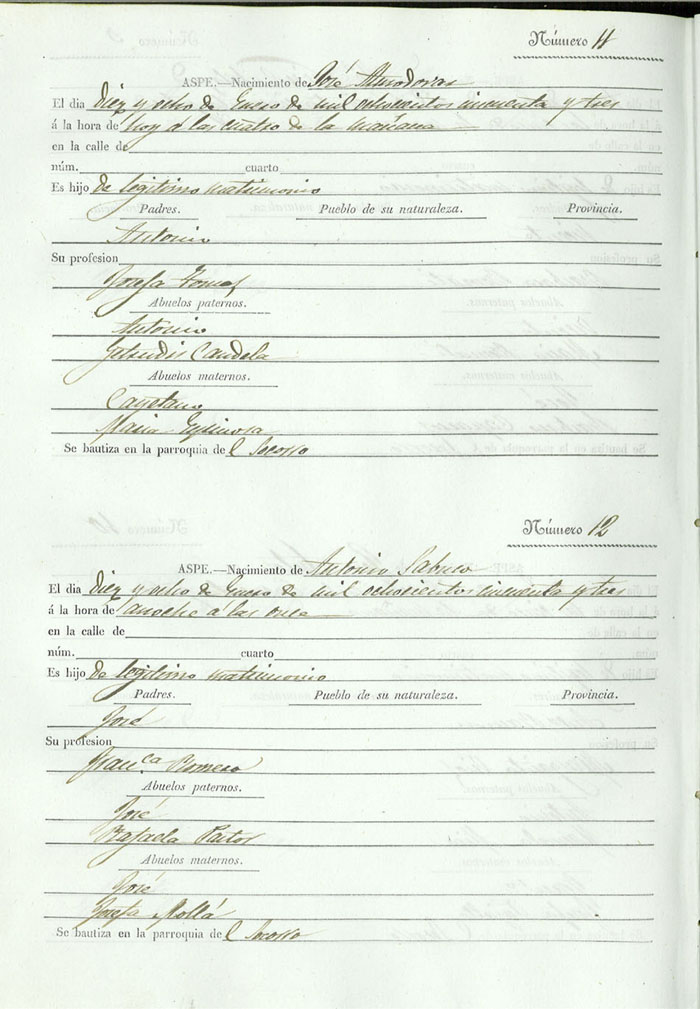 Número 11
ASPE.—Nacimiento de José Almodovar
El dia diez y ocho de Enero de mil ochocientos cincuenta y tres
á la hora de hoy á las cuatro de la mañana
en la calle de
núm. cuarto
Es hijo de legitimo matrimonio
Padres. Pueblo de su naturaleza. Provincia.
Antonio
Su profesion
Josefa Tomas
Abuelos paternos.
Antonio
Getrudis Candela
Abuelos maternos.
Cayetano
Maria Espinosa
Se bautiza en la parroquia del Socorro
Número 12
ASPE.—Nacimiento de Antonio Sabuco
El dia diez y ocho de Enero de mil ochocientos cincuenta y tres
á la hora de anoche á las once
en la calle de
núm. cuarto
Es hijo de legitimo matrimonio
Padres. Pueblo de su naturaleza. Provincia.
José
Su profesion
Fran.ca Romero
Abuelos paternos.
José
Rafaela Pastor
Abuelos maternos.
José
Josefa Mollá
Se bautiza en la parroquia del Socorro